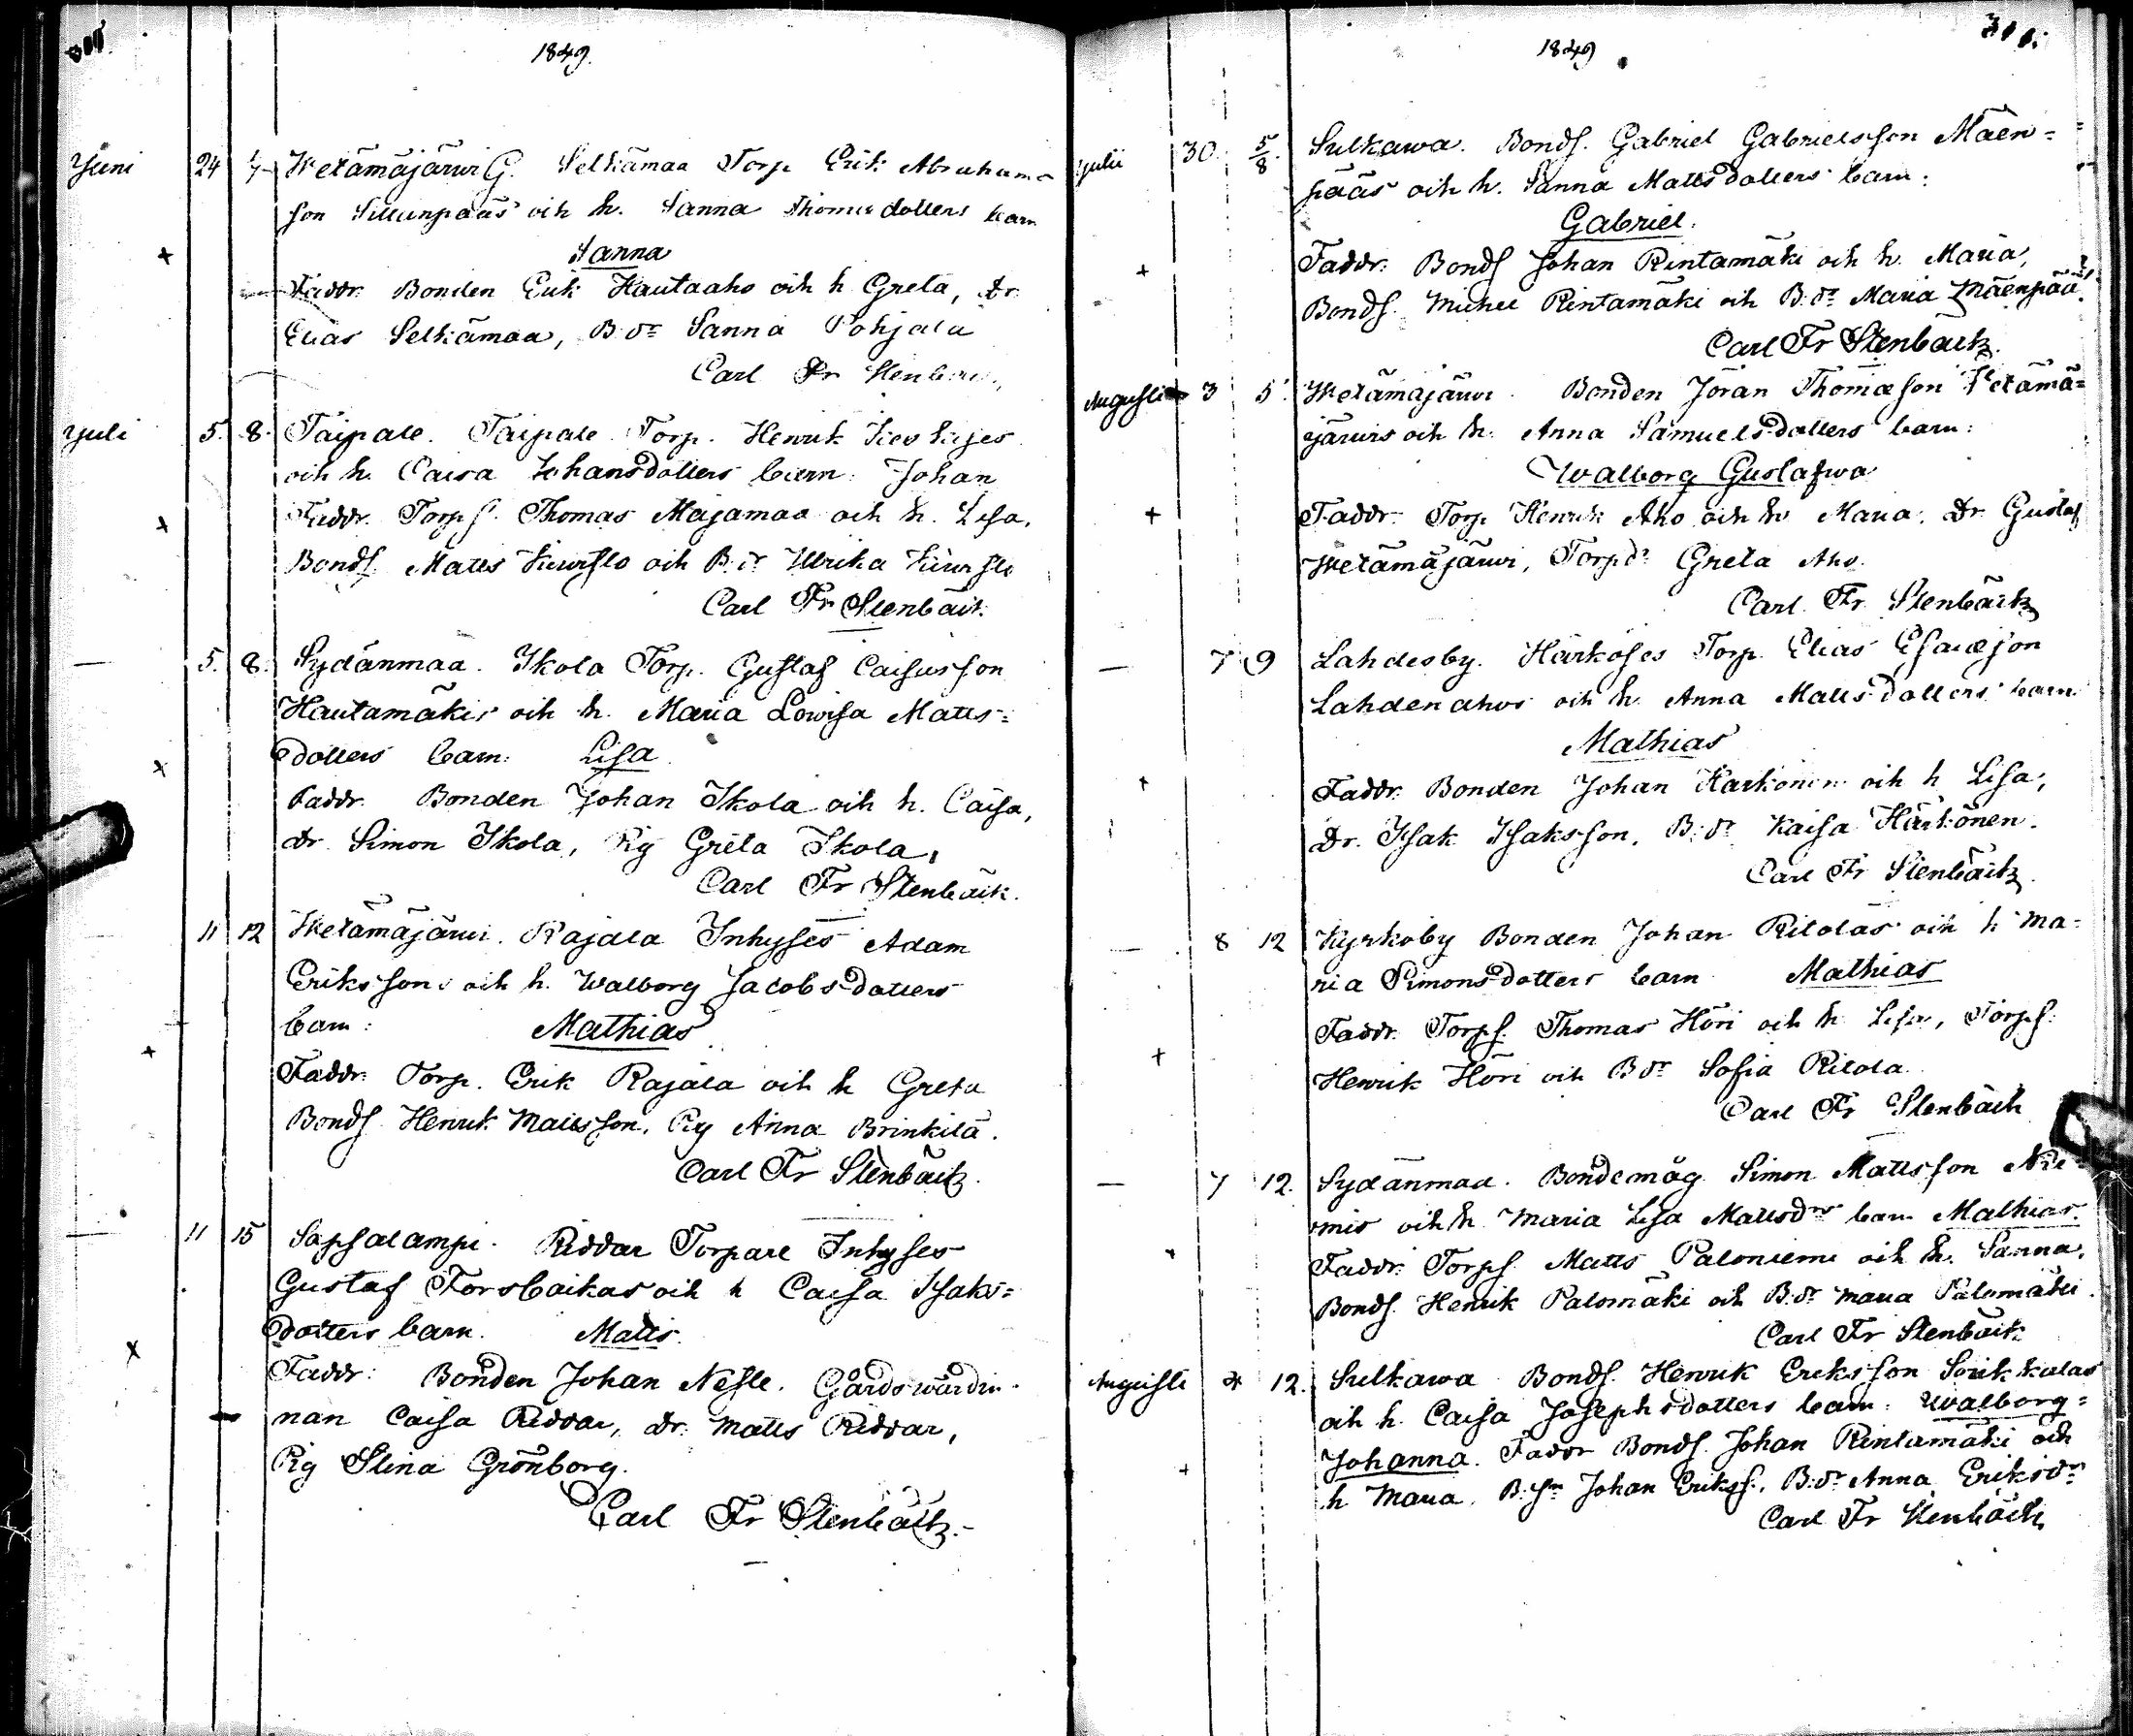 1849.
Juni 24 Wetämäjärwi G. Selkämaa Torp. Erik Abrahams
son Sillanpääs och h. Sanna Thomædotters barn
Sanna
Faddr. Bonden Erik Hautaaho och h Greta, Dr.
Elias Selkämaa, B.dr Sanna Pohjala
Carl Fr Stenbäck
Juli 5. 8. Taipale. Taipale Torp. Henrik
och h. Caisa Johansdotters barn: Johan
Faddr. Torps. Thomas Majamaa och h. Lisa,
Bonds. Matts och B.dr Ulrika
Carl Fr Stenbäck.
5. 8. Sydänmaa. Ikola Torp. Gustaf Caisusson
Hautamäkis och h. Maria Lowisa Matts=
dotters barn: Lisa
Faddr. Bonden Johan Ikola och h. Caisa,
dr. Simon Ikola, Pig Greta Ikola,
Carl Fr Stenbäck.
11 12 Wetämäjärwi. Rajala Inhyses Adam
Erikssons och h. Walborg Jacobsdotters
barn: Mathias
Faddr. Torp. Erik Rajala och h Greta
Bonds. Henrik Mattsson, Pig Anna Brinkilä.
Carl Fr Stenbäck.
11 15 Sapsalampi. Riddar Torpare Inhyses
Gustaf Forsbackas och h Caisa Isaks=
dotters barn. Matts.
Faddr: Bonden Johan Neste. Gårdswärdin-
nan Caisa Riddar, dr. Matts Riddar,
Pig Stina Grönborg.
Carl Fr Stenbäck.
1849
Julii 30. 5/8. Sulkawa. Bonds. Gabriel Gabrielsson Mäen=
pääs och h. Sanna Mattsdotters barn:
Gabriel.
Faddr: Bonds Johan Rintamäki och h. Maria,
Bonds. Michel Rintamäki och B.dr Maria Mäenpää.
Carl Fr Stenbäck.
Augusti 3 5. Wetämäjärwi. Bonden Jöran Thomæson Wetämä=
järwis och h. Anna Samuelsdotters barn:
Walborg Gustafwa
Faddr. Torp. Henrik Aho och h. Maria, Dr. Gustaf
Wetämäjärwi, Torpdr Greta Aho.
Carl Fr. Stenbäck
7 9 Lahdesby. Härköses Torp. Elias Esaiæson
Lahdenahos och h. Anna Mattsdotters barn
Mathias
Faddr. Bonden Johan Härkönen och h Lisa,
Dr. Isak Isaksson, B:dr Kaisa Härkönen.
Carl Fr Stenbäck.
8 12 Kyrkoby Bonden Johan Ritolas och h Ma=
ria Simonsdotters barn Mathias
Faddr. Torps. Thomas Höri och h Lisa, Torps.
Henrik Höri och Bdr Sofia Ritola
Carl Fr Stenbäck
7 12. Sydänmaa. Bondemåg Simon Mattsson Nie=
mis och h. Maria Lisa Mattsdrs barn Mathias.
Faddr. Torps. Matts Paloniemi och h. Sanna,
Bonds. Henrik Palomäki och B:dr Maria Palomäki.
Carl Fr Stenbäck
Augusti 12. Sulkawa Bonds. Henrik Eriksson
och h. Caisa Josephsdotters barn: Walborg=
Johanna. Faddr Bonds. Johan Rintamäki och
h Maria, B.sn Johan Erikss., B:dr Anna Eriksdr
Carl Fr Stenbäck